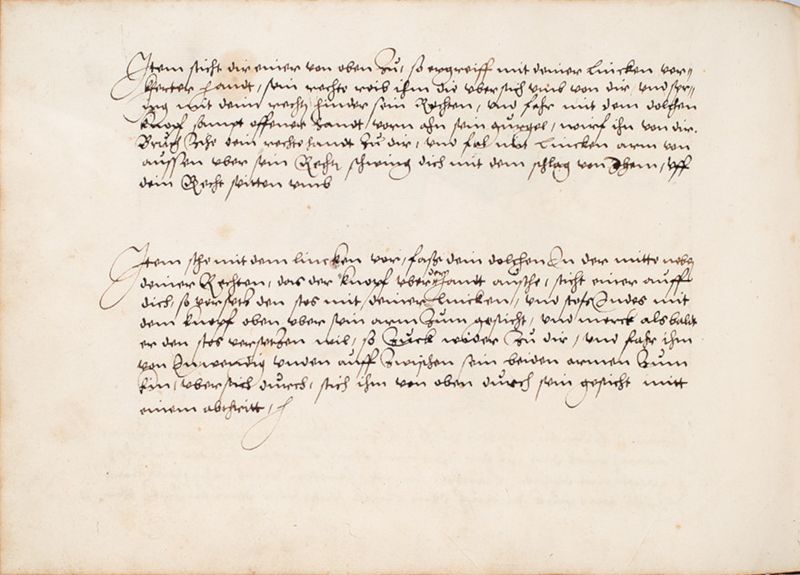 Item sticht dir einer von oben Zu, so ergreiff mit deiner lincken ver„
kherter handt, sein rechte reib ihm die vbersich vmb von dir, vnd spr„
ing mit deim rechtn hinder sein Rechten, vnd fahr mit dem dolchen
knopf sampt offener handt, vorm ahn sein gurgel, wirf ihn von dir.
Bruch Zihe dein rechte handt Zu dir, vnd fal mit lincken arm von
aussen vber sein Recht schwing dich mit dem schlag von Ihem, vff
dein Recht seitten vmb
Item sthe mit dem lincken vor, fasse dein dolchen In der mitte nebn
deiner Rechten, das der knopf vber der handt ausshe, sticht einer auff
dich, so versetz den stos mit deiner lincken, vnd stoss Indes mit
dem knopf oben vber sein arm Zum gesicht, vnd merck als baldt
er den stos versetzen wil, so Zuck wider Zu dir, vnd fahr ihm
von Inwendig vnden auff Zwischen sein beiden armen Zum
kin, vbersich durch, stich ihm von oben durch sein gesicht mitt
einem abthritt,